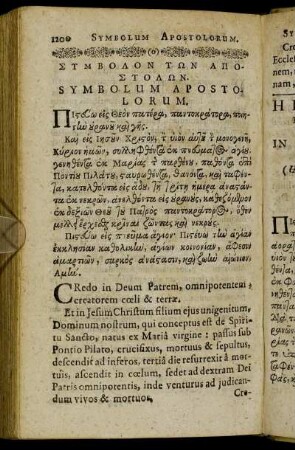 1200 SYMBOLUM APOSTOLORUM.
ΣΥΜΒΟΛΟΝ ΤΩΝ ΑΠΟ-
ΣΤΟΛΩΝ.
SYMBOLUM APOSTO-
LORUM.
Πιστεύω εἰς Θεὸν πατέρα, παντοκράτορα, ποιη-
τὴν οὐρανοῦ καὶ γῆς.
Καὶ εἰς Ἰησοῦν Χριστὸν, τ υἱὸν αὐτοῦ τ μονογενῆ,
Κύριον ἡμῶν, συλληφθέντα ἐκ πνεύματος ἁγίου,
γεννηθέντα ἐκ Μαρίας τ παρθένου, παθόντα ἐπὶ
Ποντίου Πιλάτου, σταυρωθέντα, θανόντα, καὶ ταφέν-
τα, κατελθόντα εἰς ᾅδου, τῇ τρίτῃ ἡμέρᾳ ἀναστάν-
τα ἐκ νεκρῶν, ἀνελθόντα εἰς οὐρανοὺς, καθεζόμενον
ἐκ δεξιῶν Θεοῦ τοῦ Πατρὸς παντοκράτορος, ὅθεν
μέλλει ἔρχεσθαι κρῖναι ζῶντας καὶ νεκρούς.
Πιστεύω εἰς τ πνεῦμα ἅγιον. Πιστεύω τὴν ἁγίαν
ἐκκλησίαν καθολικὴν, ἁγίων κοινωνίαν, ἄφεσιν
ἁμαρτιῶν, σαρκὸς ἀνάστασιν, καὶ ζωὴν αἰώνιον.
Ἀμήν.
CRedo in Deum Patrem, omnipotentem
creatorem cœli & terræ.
Et in Jesum Christum filium ejus unigenitum,
Dominum nostrum, qui conceptus est de Spiri-
tu Sancto, natus ex Mariâ virgine: passus sub
Pontio Pilato, crucifixus, mortuus & sepultus,
descendit ad inferos. tertiâ die resurrexit à mor-
tuis, ascendit in cœlum, sedet ad dextram Dei
Patris omnipotentis, inde venturus ad judican-
dum vivos & mortuos,
Cre-